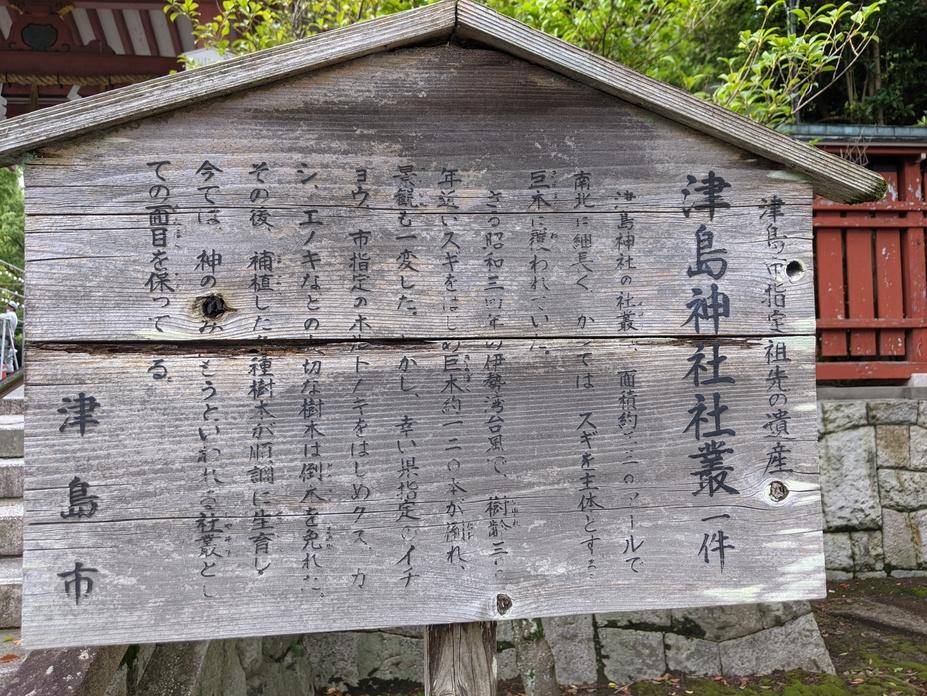 津島市指定 祖先の遺産
津島神社社叢 一件
津島神社の社叢 面積約 ールで
南北に細長く、か ては スギを主体とする
巨木に覆われていた
さる昭和三四年の伊勢湾台風で、樹齢三
年近いスギをはじめ巨木約一二〇本が倒れ、
景観も一変した。しかし、幸い県指定のイチ
ョウ、市指定のホルトノキをはじめクス、カ
シ、エノキなどの大切な樹木は倒木を免れた。
その後、補植した各種樹木が順調に生育し
今では、神の もうといわれる社叢とし
ての面目を保って る。
津島市